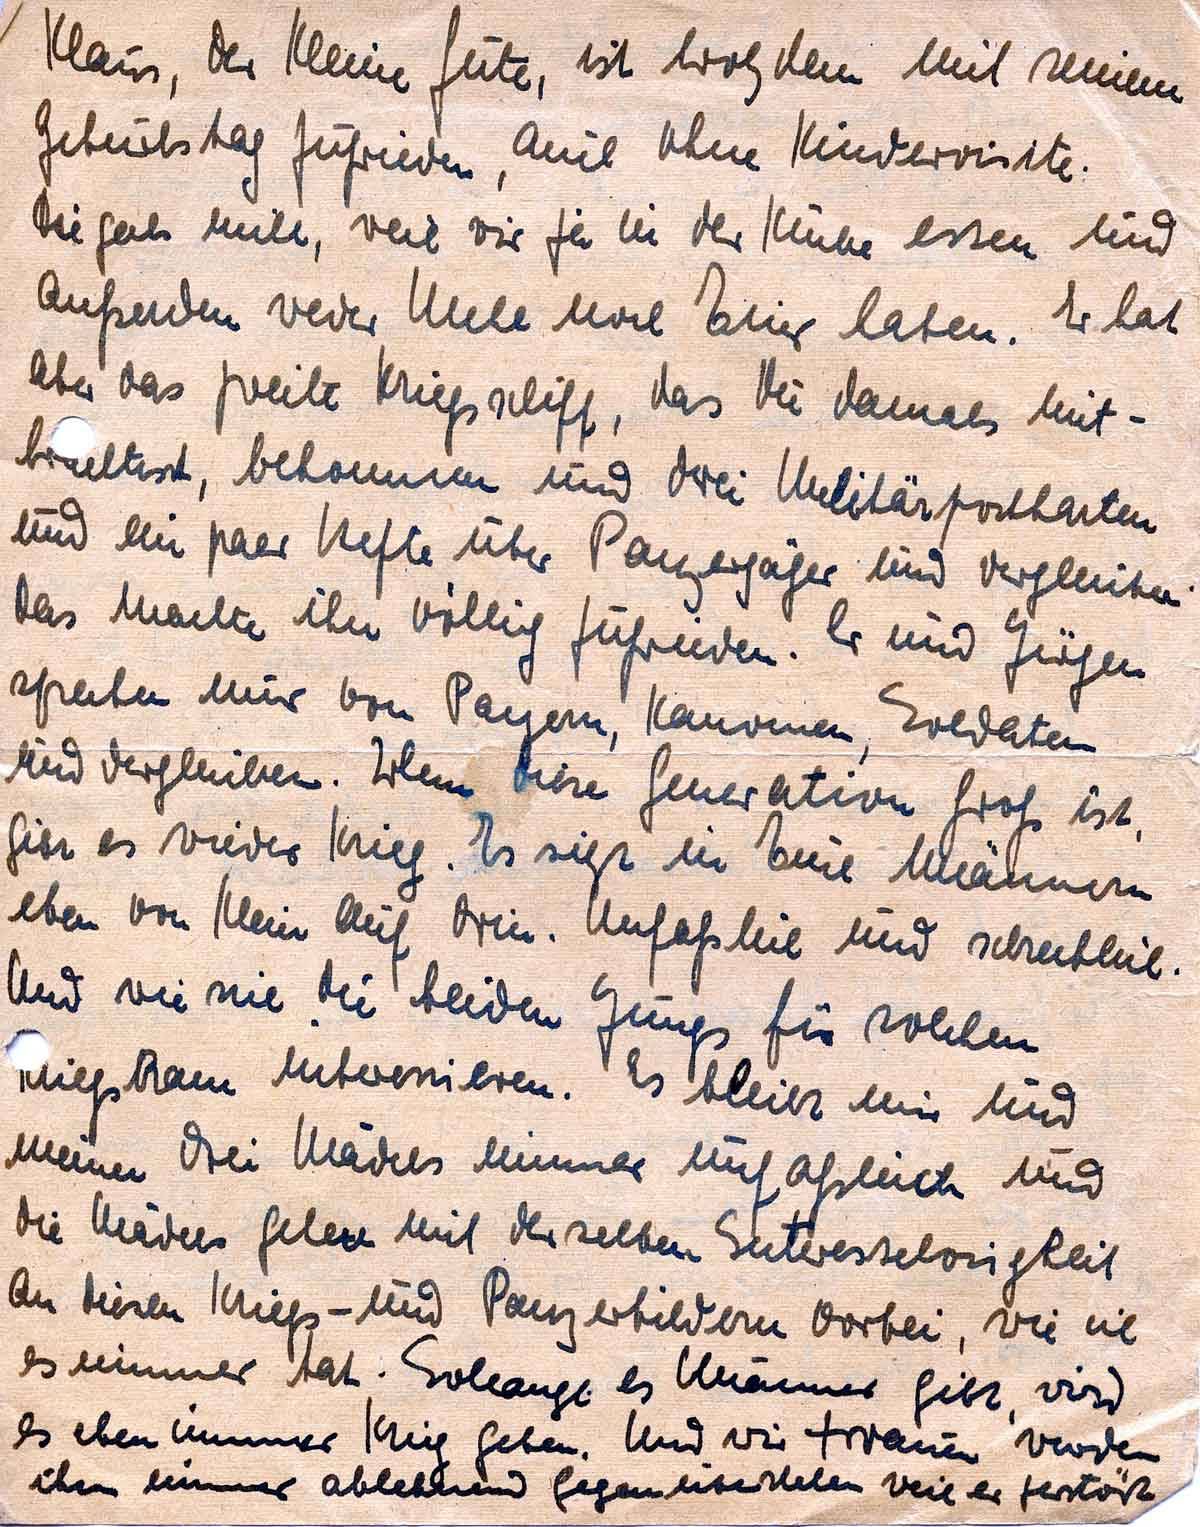 Klaus, der kleine Gute, ist trotzdem mit seinem
Geburtstag zufrieden, auch ohne Kindervisite.
Die gabs nicht, weil wir ja in der Küche essen und
außerdem weder Mehl noch Eier haben. Er hat
aber das zweite Kriegsschiff, das Du damals mit-
brachtest, bekommen und drei Militärpostkarten
und ein paar Hefte über Panzerjäger und dergleichen
Das machte ihn völlig zufrieden. Er und Jürgen
sprechen nur von Panzern, Kanonen, Soldaten
und dergleichen. Wenn diese Generation groß ist,
gibt es wieder Krieg. Es liegt in Euch Männern
eben von klein auf drin. Unfaßlich und schrecklich.
Und wie sich die beiden Jungs für solchen
Kriegskram interessieren. Es bleibt mir und
meinen drei Mädels immer unfaßlich und
die Mädels gehen mit derselben Interesselosigkeit
an diesen Kriegs- und Panzerbildern vorbei, wie ich
es immer tat. Solange es Männer gibt, wird
es eben immer Krieg geben. Und wir Frauen werden
ihm immer ablehnend gegenüberstehen weil er zerstört